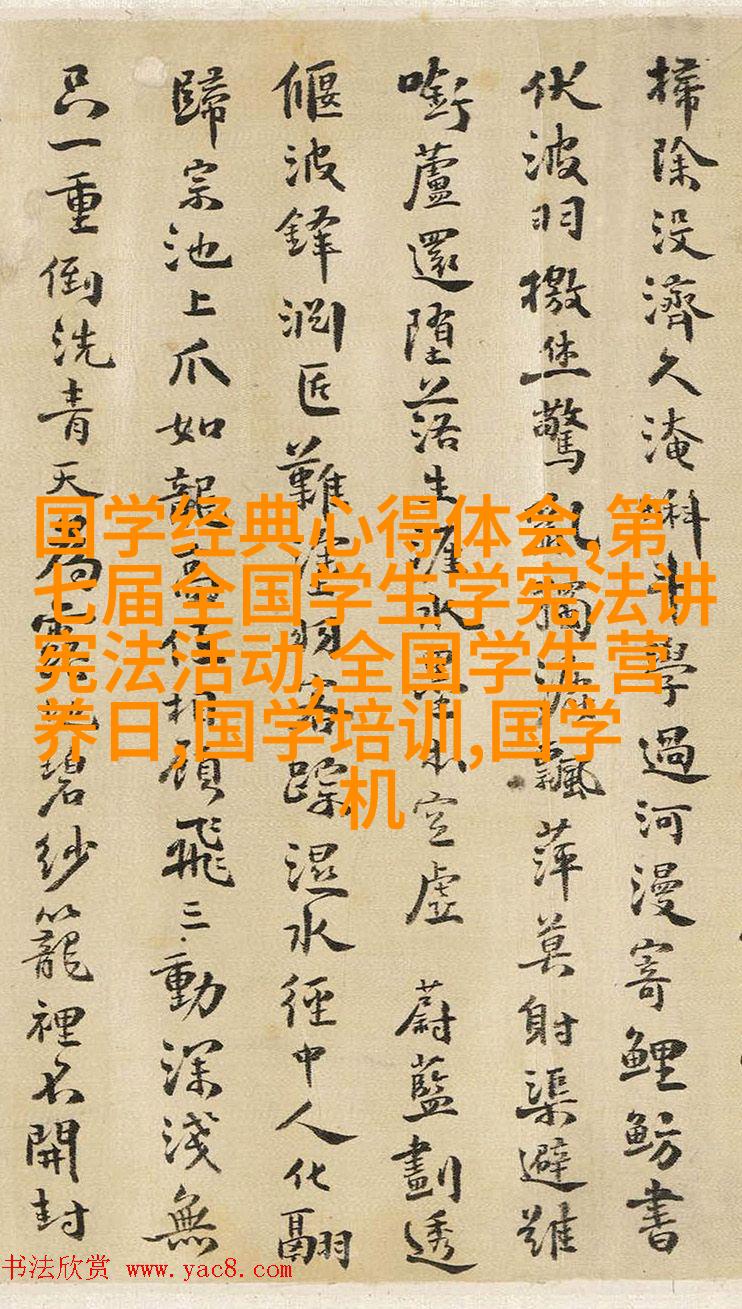 掃除沒濟久淹蝌斗學過河漫寄鯉魴書
伏波羽檄驚亂獨飄萍莫射渠避難
啣蘆還墮落生涯水墨空虛 蔚藍劃透
偃波鋒匠難塗羽客蹤濕水徑中人化翮
歸宗池上爪如報飛三動深淺無
只一重倒洗青天碧紗籠裡不開封
国学经典心得体会,第
七届全国学生学宪法讲
宪法活动,全国学生营
养日,国学培训,国学
机
书法欣赏 www.yac8.com